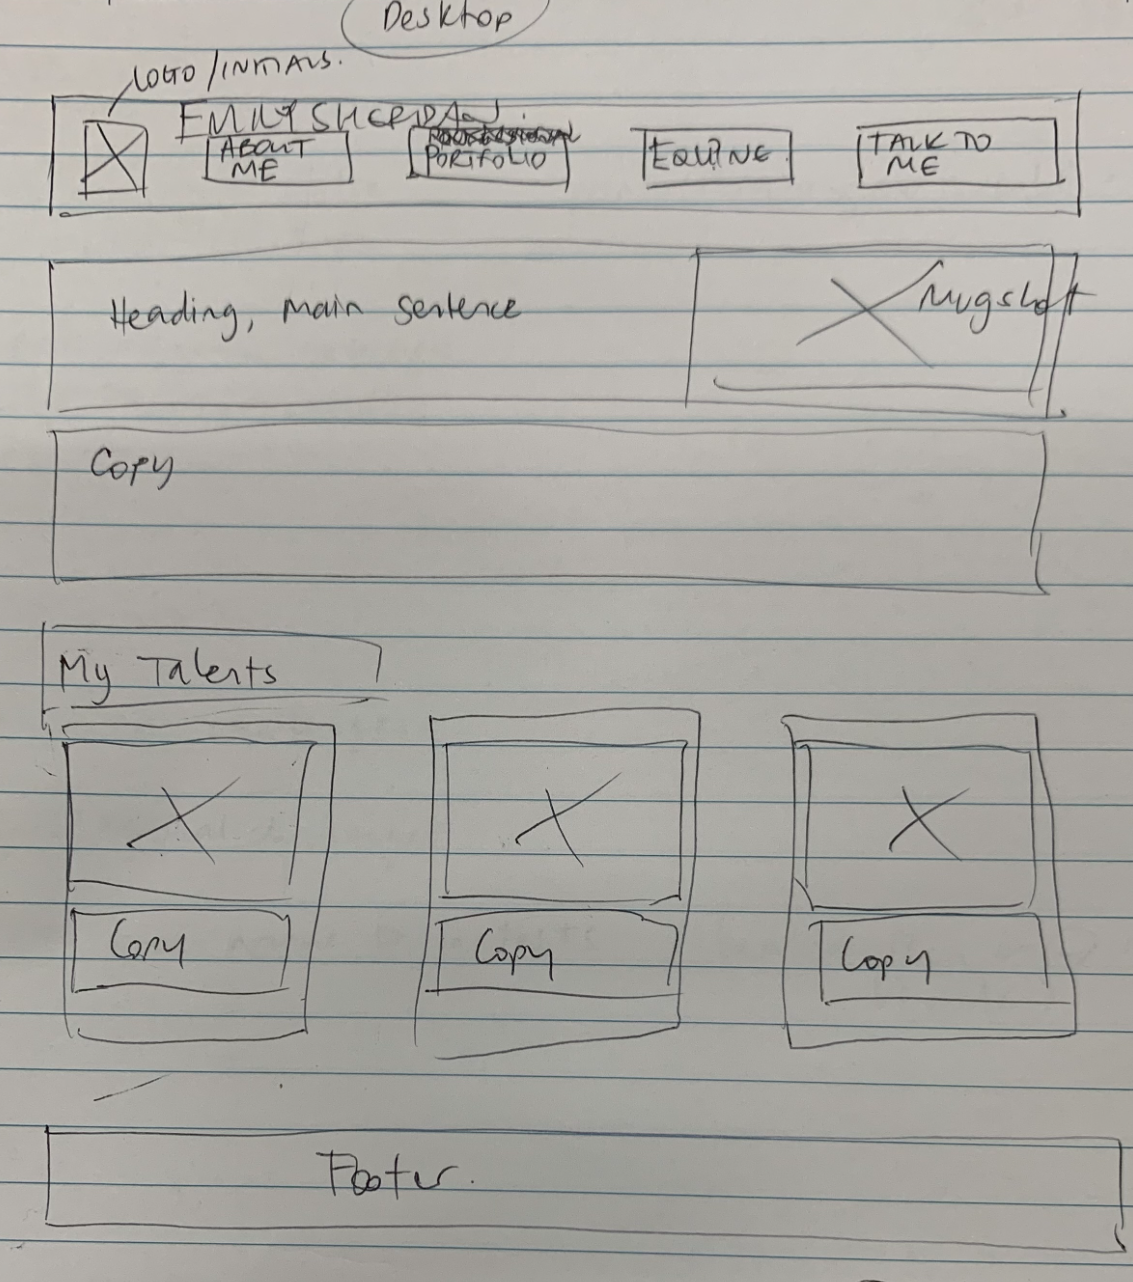 Desktop
LOGO/INITIALS.
EMILY SHERIDAN
ABOUT
ME
PORTFOLIO
EQUINE
TALK TO
ME
Heading, main sentence
Mugshot
Copy
My Talents
Copy
Copy
Copy
Footer.